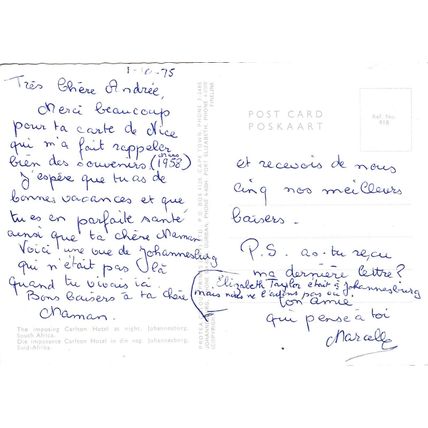 1-10-75
Très Chère Andrée,
Merci beaucoup
pour ta carte de Nice
qui m'a fait rappeler
bien des souvenirs (1958)
J'espère que tu as de
bonnes vacances et que
tu es en parfaite santé
ainsi que ta chère Maman
Voici une vue de Johannesburg
qui n'était pas là
quand tu vivais ici
Bons baisers à ta chère
Maman.
The imposing Carlton Hotel at night, Johannesburg,
South Africa.
Die imposante Carlton Hotel in die nag, Johannesburg,
Suid-Afrika.
POST CARD
POSKAART
Ref. No.
et recevois de nous
cinq nos meilleurs
baisers.
P.S. as-tu reçu
ma dernière lettre?
Elizabeth Taylor était à Johannesburg
mais nous ne l'avons pas vu
ton amie
qui pense à toi
Marcelle